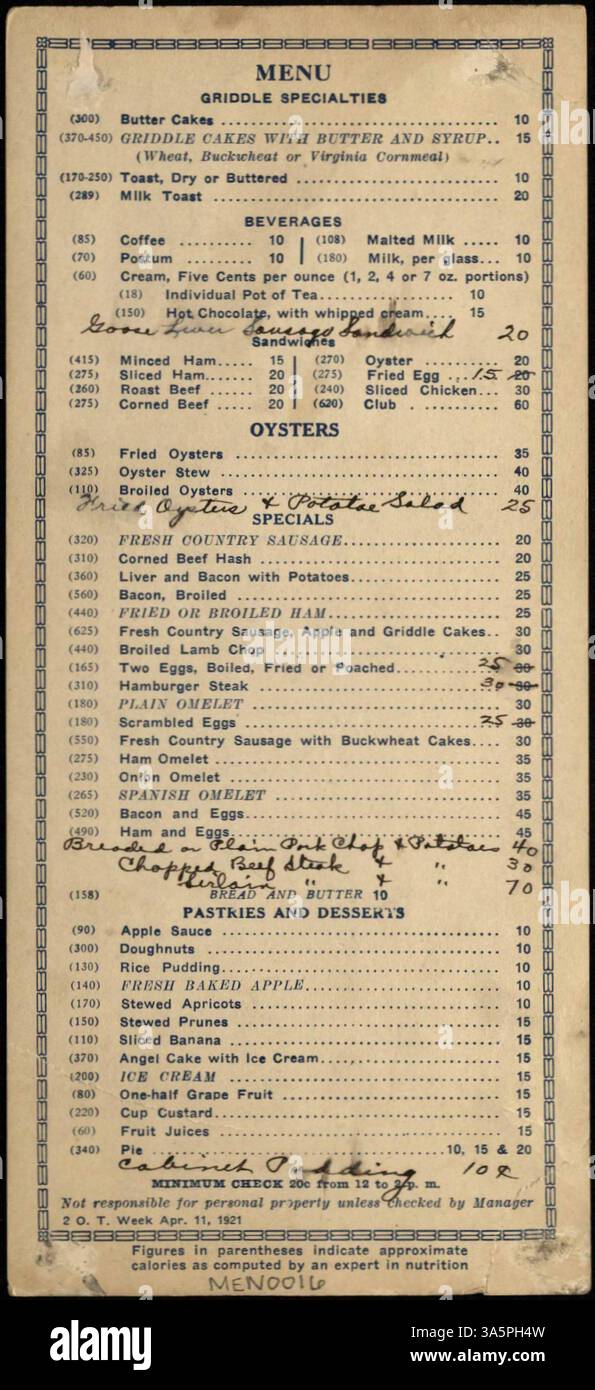 MENU
GRIDDLE SPECIALTIES
(300) Butter Cakes 10
(370-450) GRIDDLE CAKES WITH BUTTER AND SYRUP.. 15
(Wheat, Buckwheat or Virginia Cornmeal)
(170-250) Toast, Dry or Buttered 10
(289) Milk Toast 20
BEVERAGES
(85) Coffee 10 (108) Malted Milk 10
(70) Postum 10 (180) Milk, per glass 10
(60) Cream, Five Cents per ounce (1, 2, 4 or 7 oz. portions)
(18) Individual Pot of Tea 10
(150) Hot Chocolate, with whipped cream 15
Goose Liver Sausage Sandwich 20
Sandwiches
(415) Minced Ham 15 (270) Oyster 20
(275) Sliced Ham 20 (275) Fried Egg 15 20
(260) Roast Beef 20 (240) Sliced Chicken 30
(275) Corned Beef 20 (620) Club 60
OYSTERS
(85) Fried Oysters 35
(325) Oyster Stew 40
(110) Broiled Oysters 40
Fried Oysters & Potatoe Salad 25
SPECIALS
(320) FRESH COUNTRY SAUSAGE 20
(310) Corned Beef Hash 20
(360) Liver and Bacon with Potatoes 25
(560) Bacon, Broiled 25
(440) FRIED OR BROILED HAM 25
(625) Fresh Country Sausage, Apple and Griddle Cakes.. 30
(440) Broiled Lamb Chop 30
(165) Two Eggs, Boiled, Fried or Poached 25 30
(310) Hamburger Steak 30 30
(180) PLAIN OMELET 30
(180) Scrambled Eggs 25 30
(550) Fresh Country Sausage with Buckwheat Cakes.... 30
(275) Ham Omelet 35
(230) Onion Omelet 35
(265) SPANISH OMELET 35
(520) Bacon and Eggs 45
(490) Ham and Eggs 45
Breaded or Plain Pork Chop & Potatoes 40
Chopped Beef Steak & " 30
Serloin " & " 70
(158) BREAD AND BUTTER 10
PASTRIES AND DESSERTS
(90) Apple Sauce 10
(300) Doughnuts 10
(130) Rice Pudding 10
(140) FRESH BAKED APPLE 10
(170) Stewed Apricots 10
(150) Stewed Prunes 15
(110) Sliced Banana 15
(370) Angel Cake with Ice Cream 15
(200) ICE CREAM 15
(80) One-half Grape Fruit 15
(220) Cup Custard 15
(60) Fruit Juices 15
(340) Pie 10, 15 & 20
Cabinet Pudding 10¢
MINIMUM CHECK 20c from 12 to 2 p. m.
Not responsible for personal property unless checked by Manager
2 O. T. Week Apr. 11, 1921
Figures in parentheses indicate approximate
calories as computed by an expert in nutrition
MEN0016
alamy
Image ID: 3A5PH4W
www.alamy.com